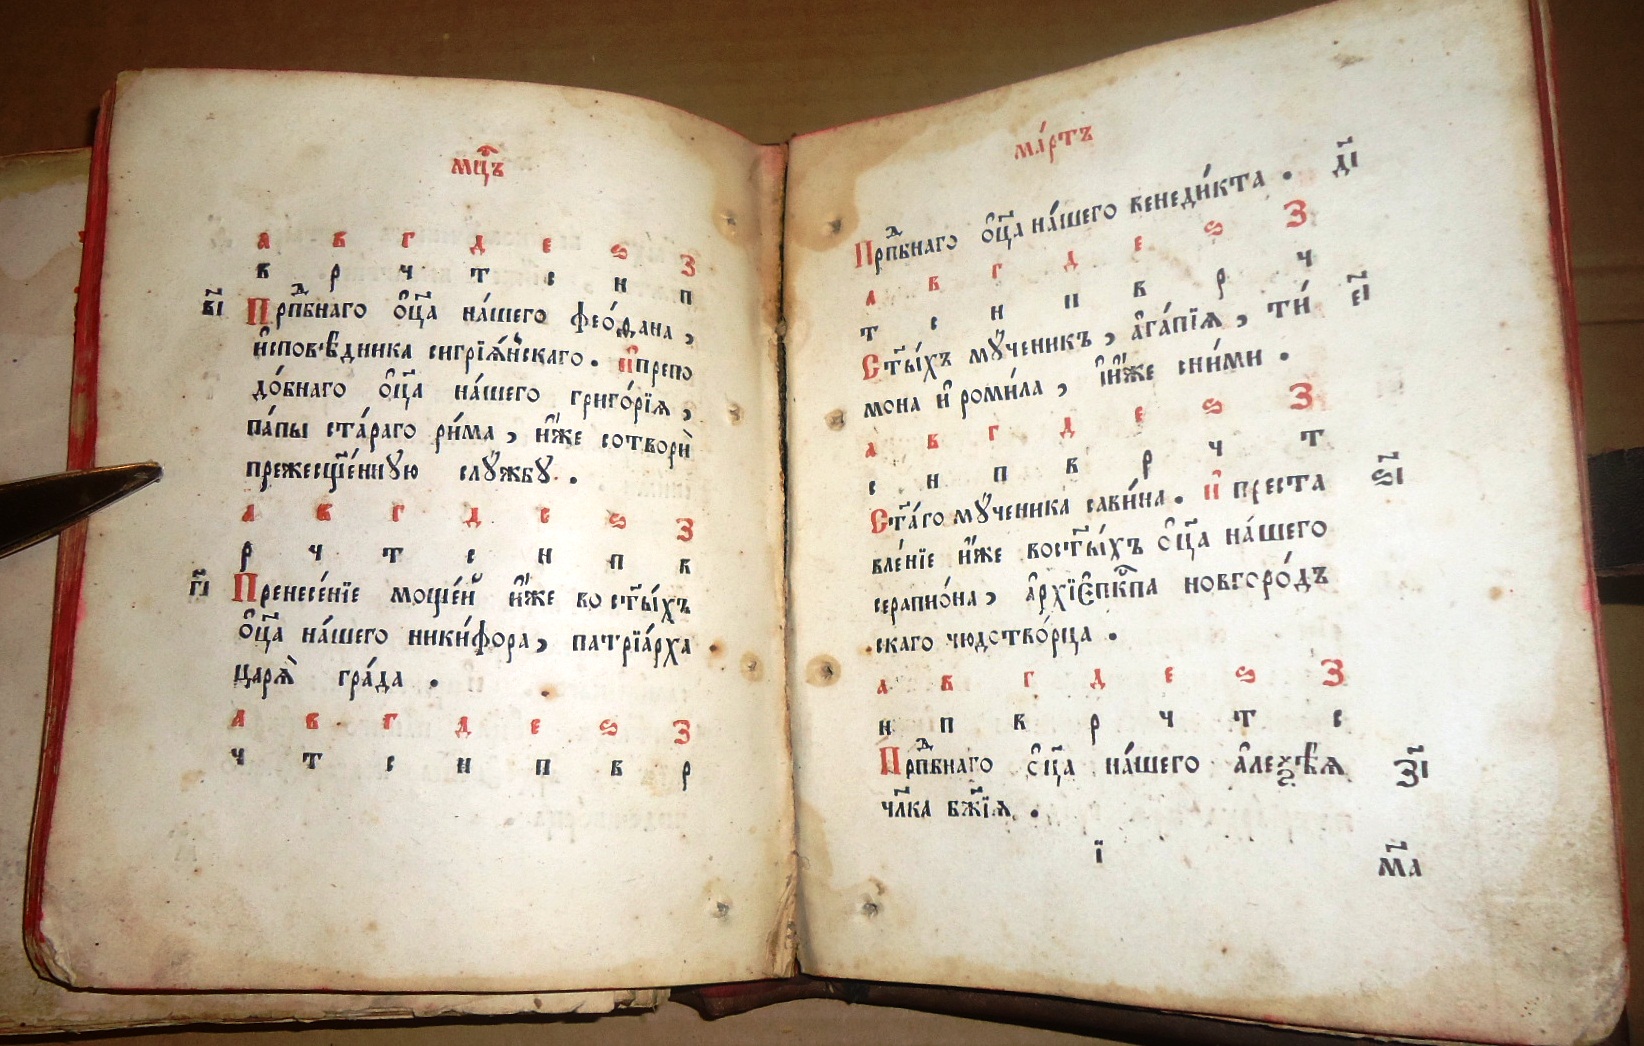 мц҃ъ
а в г д е ѕ з
в р ч т с н п
в҃і Прпⷣбнаго ѻ҆ц҃а на́шего феѻ́фана,
и҆сповѣ́дника сигрїѧ́нскаго. и҆ препо
до́бнаго ѻ҆ц҃а на́шего григо́рїѧ,
па́пы ста́раго ри́ма, и҆́же сотвори̇̀
прежесщ҃е́ннꙋю слꙋ́жбꙋ.
а в г д е ѕ з
р ч т с н п в
г҃і Пренесе́нїе моще́й и҆́же во ст҃ы́хъ
ѻ҆ц҃а на́шего ники́фора, патрїа́рха
царѧ̀ гра́да.
а в г д е ѕ з
ч т с н п в р
ма́ртъ
Прпⷣбнаго ѻ҆ц҃а на́шего венеди́кта. д҃і
а в г д е ѕ з
т с н п в р ч
Ст҃ы́хъ мꙋ́ченикъ, а҆га́пїѧ, ти́ е҃і
мона и҆ роми́ла, и҆́же сни́ми.
а в г д е ѕ з
с н п в р ч т
Ст҃а́го мꙋ́ченика сави́на. и҆ преста ѕ҃і
вле́нїе и҆́же вост҃ы́хъ ѻ҆ц҃а на́шего
серапио́на, а҆рхїєпⷭ҇кпа новгоро́дъ
скаго чюдство́рца.
а в г д е ѕ з
н п в р ч т с
Прпⷣбнаго ѻ҆ц҃а на́шего а҆леѯѣ́ѧ з҃і
чл҃ка бж҃їѧ.
і м҃а